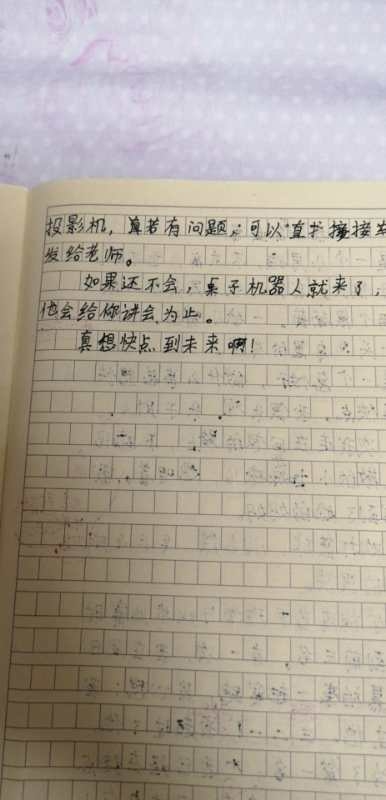 投影机，真若有问题，可以直接发
发给老师。
如果还不会，桌子机器人就来了，
他会给你讲会为止。
真想快点到未来啊！